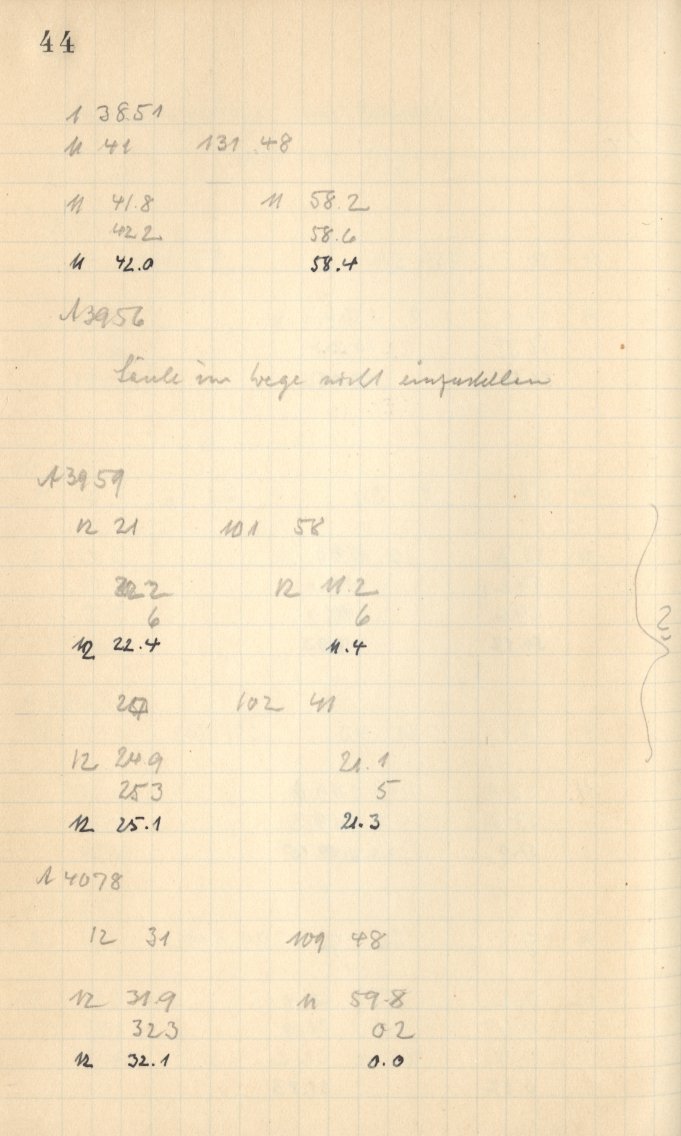 44
A 3851
11 41 131 48
11 41.8 11 58.2
42 2 58.6
11 42.0 58.4
A 3956
Säule im Wege nicht einzustellen
A 3959
12 21 101 58
22 2 12 11.2
6 6
12 22.4 11.4
?
102 41
12 24 9 21.1
25 3 5
12 25.1 21.3
A 4078
12 31 109 48
12 31.9 11 59.8
32 3 0 2
12 32.1 0.0